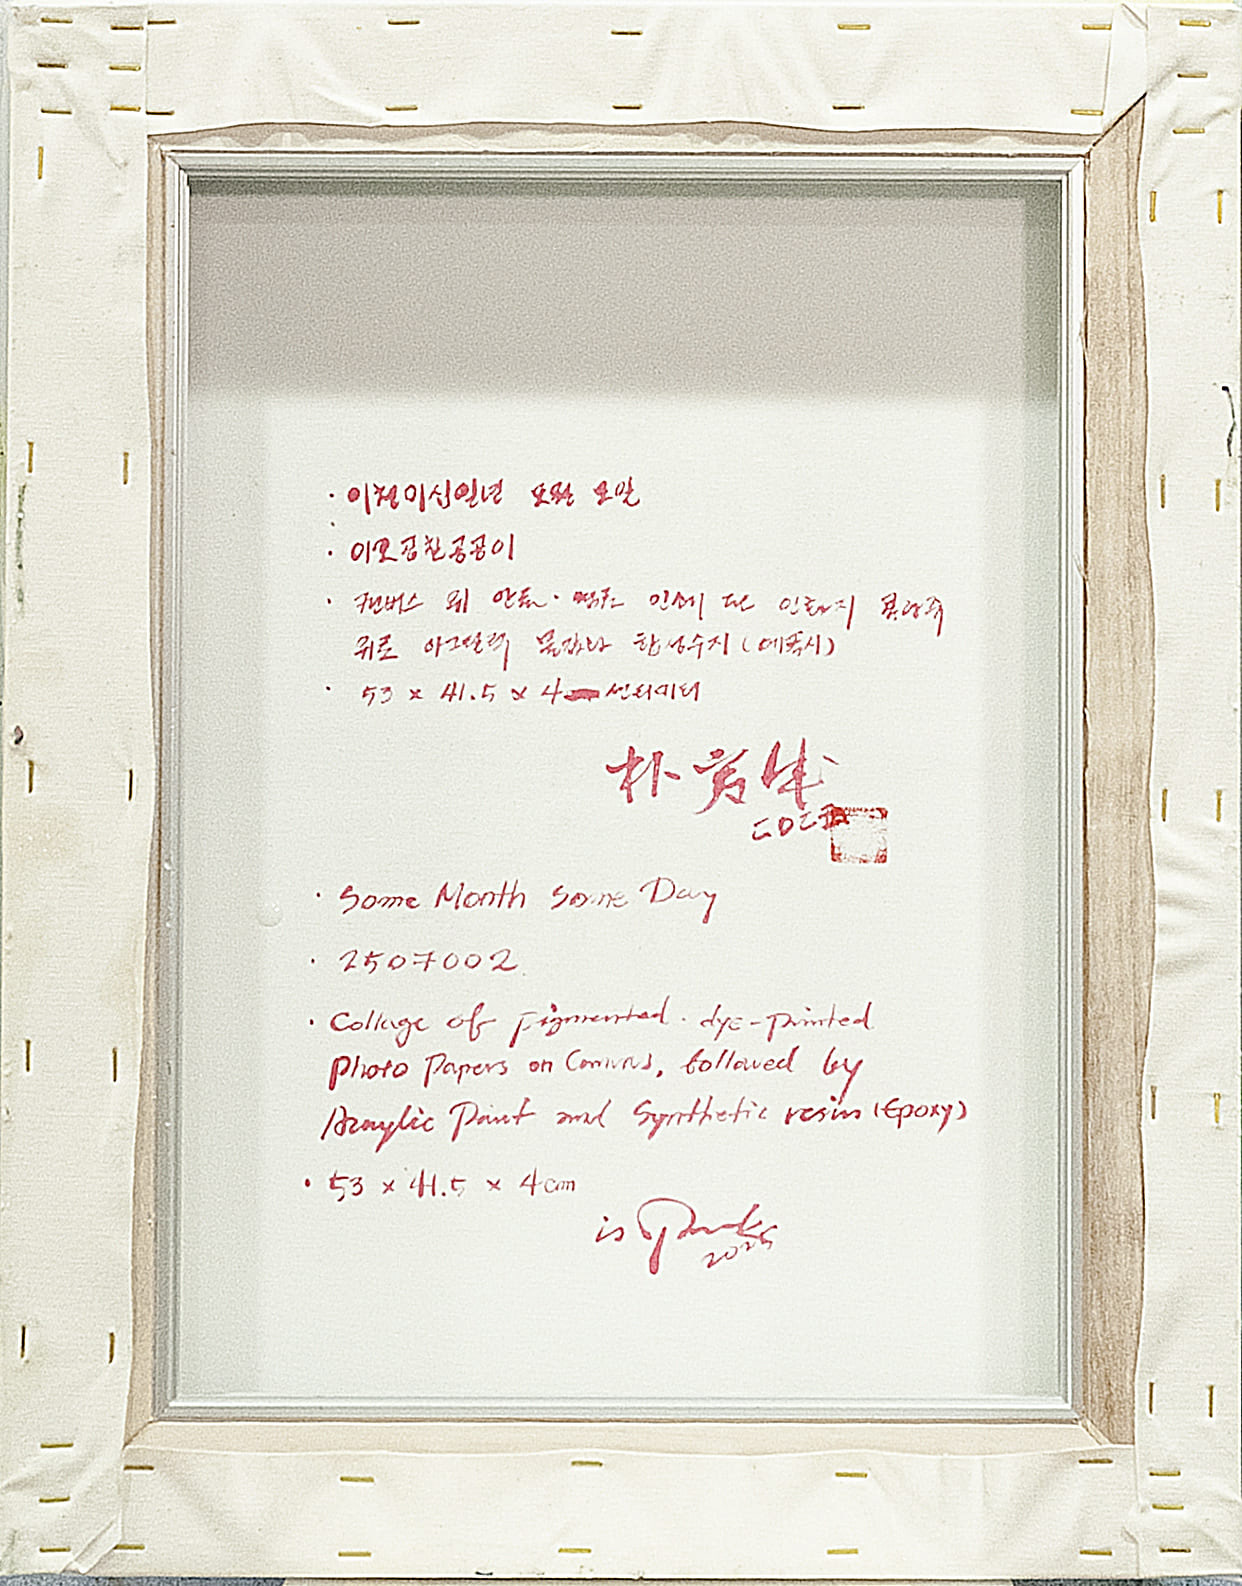 · 이천이십일년 모월 모일
· 이오공칠공공이
· 캔버스 위 안료· 염료 인쇄 된 인화지 콜라주
위로 아크릴릭 물감과 합성수지 (에폭시)
· 53 x 41.5 x 4 센티미터
朴
· Some Month Some Day
· 2507002
· Collage of pigmented · dye-printed
Photo Papers on Canvas, followed by
Acrylic Paint and Synthetic resin (Epoxy)
· 53 x 41.5 x 4cm
is Park
2025